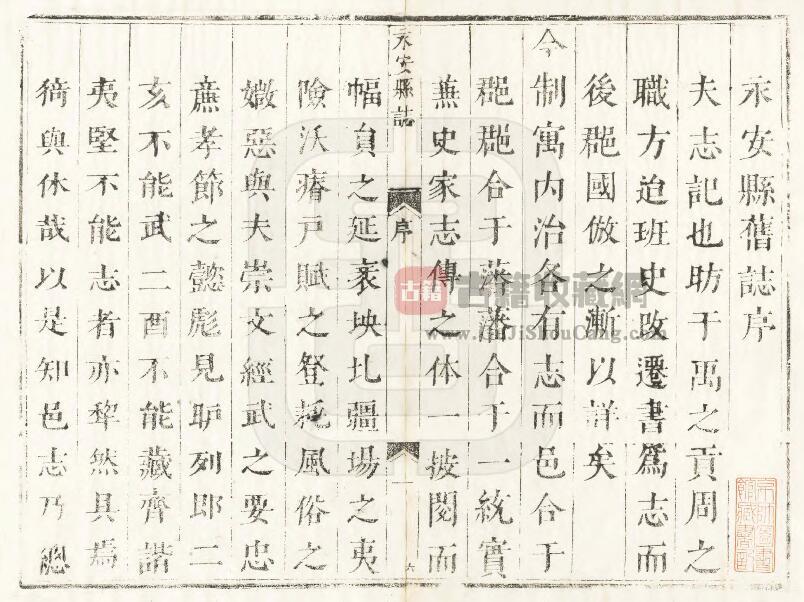 永安縣舊誌序
夫志記也昉于禹之貢周之
職方迨班史改遷書爲志而
後郡國倣之漸以詳矣
今
制寓内治各有志而邑合于
郡郡合于藩藩合于一統實
蕪史家志傳之体一披閱而
永安縣誌
序
一
六
幅員之延袤坱圠疆場之夷
險沃瘠戸賦之登耗風俗之
媺惡與夫崇文經武之要忠
廉孝節之懿彪見胪列即二
亥不能武二酉不能藏齊諧
夷堅不能志者亦犂然具焉
猗與休哉以是知邑志乃總
古籍
古籍收藏網
GuJiShouCang.com